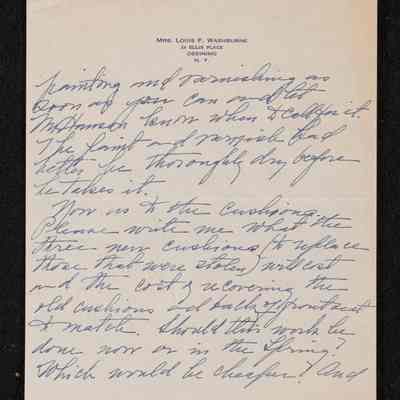 Mrs. Louis F. Washburne
24 Ellis Place
Ossining
N. Y.
painting and varnishing as
soon as you can and let
know when to call for it.
The paint and varnish had
better be thoroughly dry before
he takes it.
Now as to the cushions.
Please write me what the
three new cushions (to replace
those that were stolen) will cost
and the cost of recovering the
old cushions and back of front seat
to match. Should this work be
done now or in the Spring?
Which would be cheaper? And